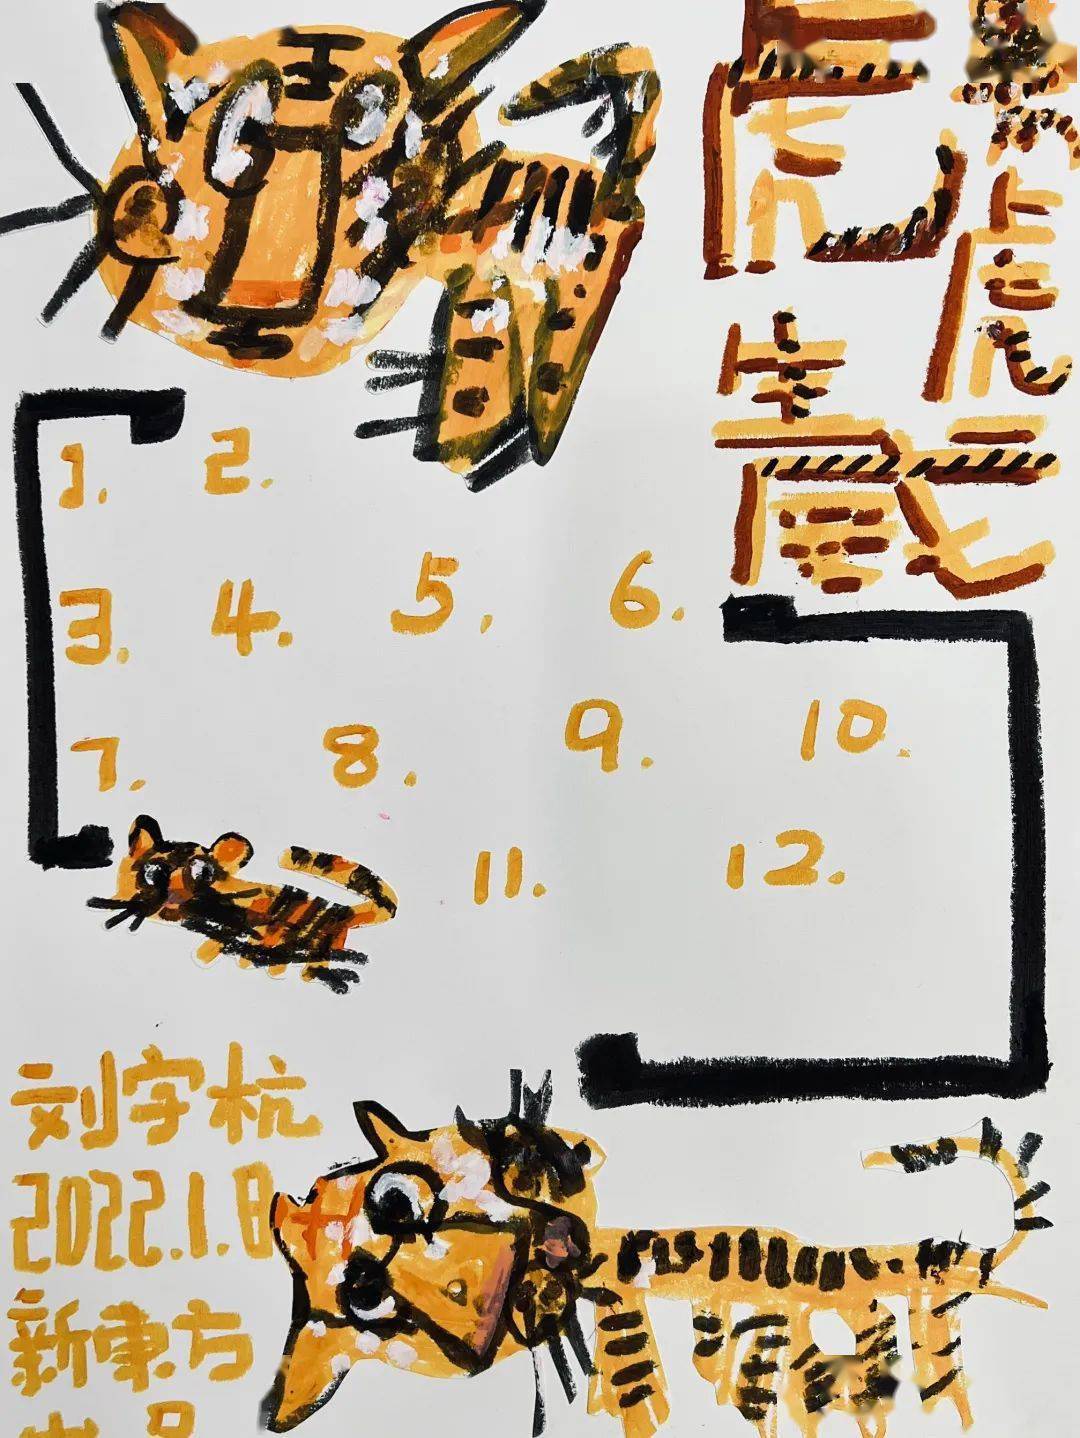 王
虎虎
生
威
1. 2.
3. 4. 5. 6.
7. 8. 9. 10.
11. 12.
刘宇杭
2022.1.8
新東方